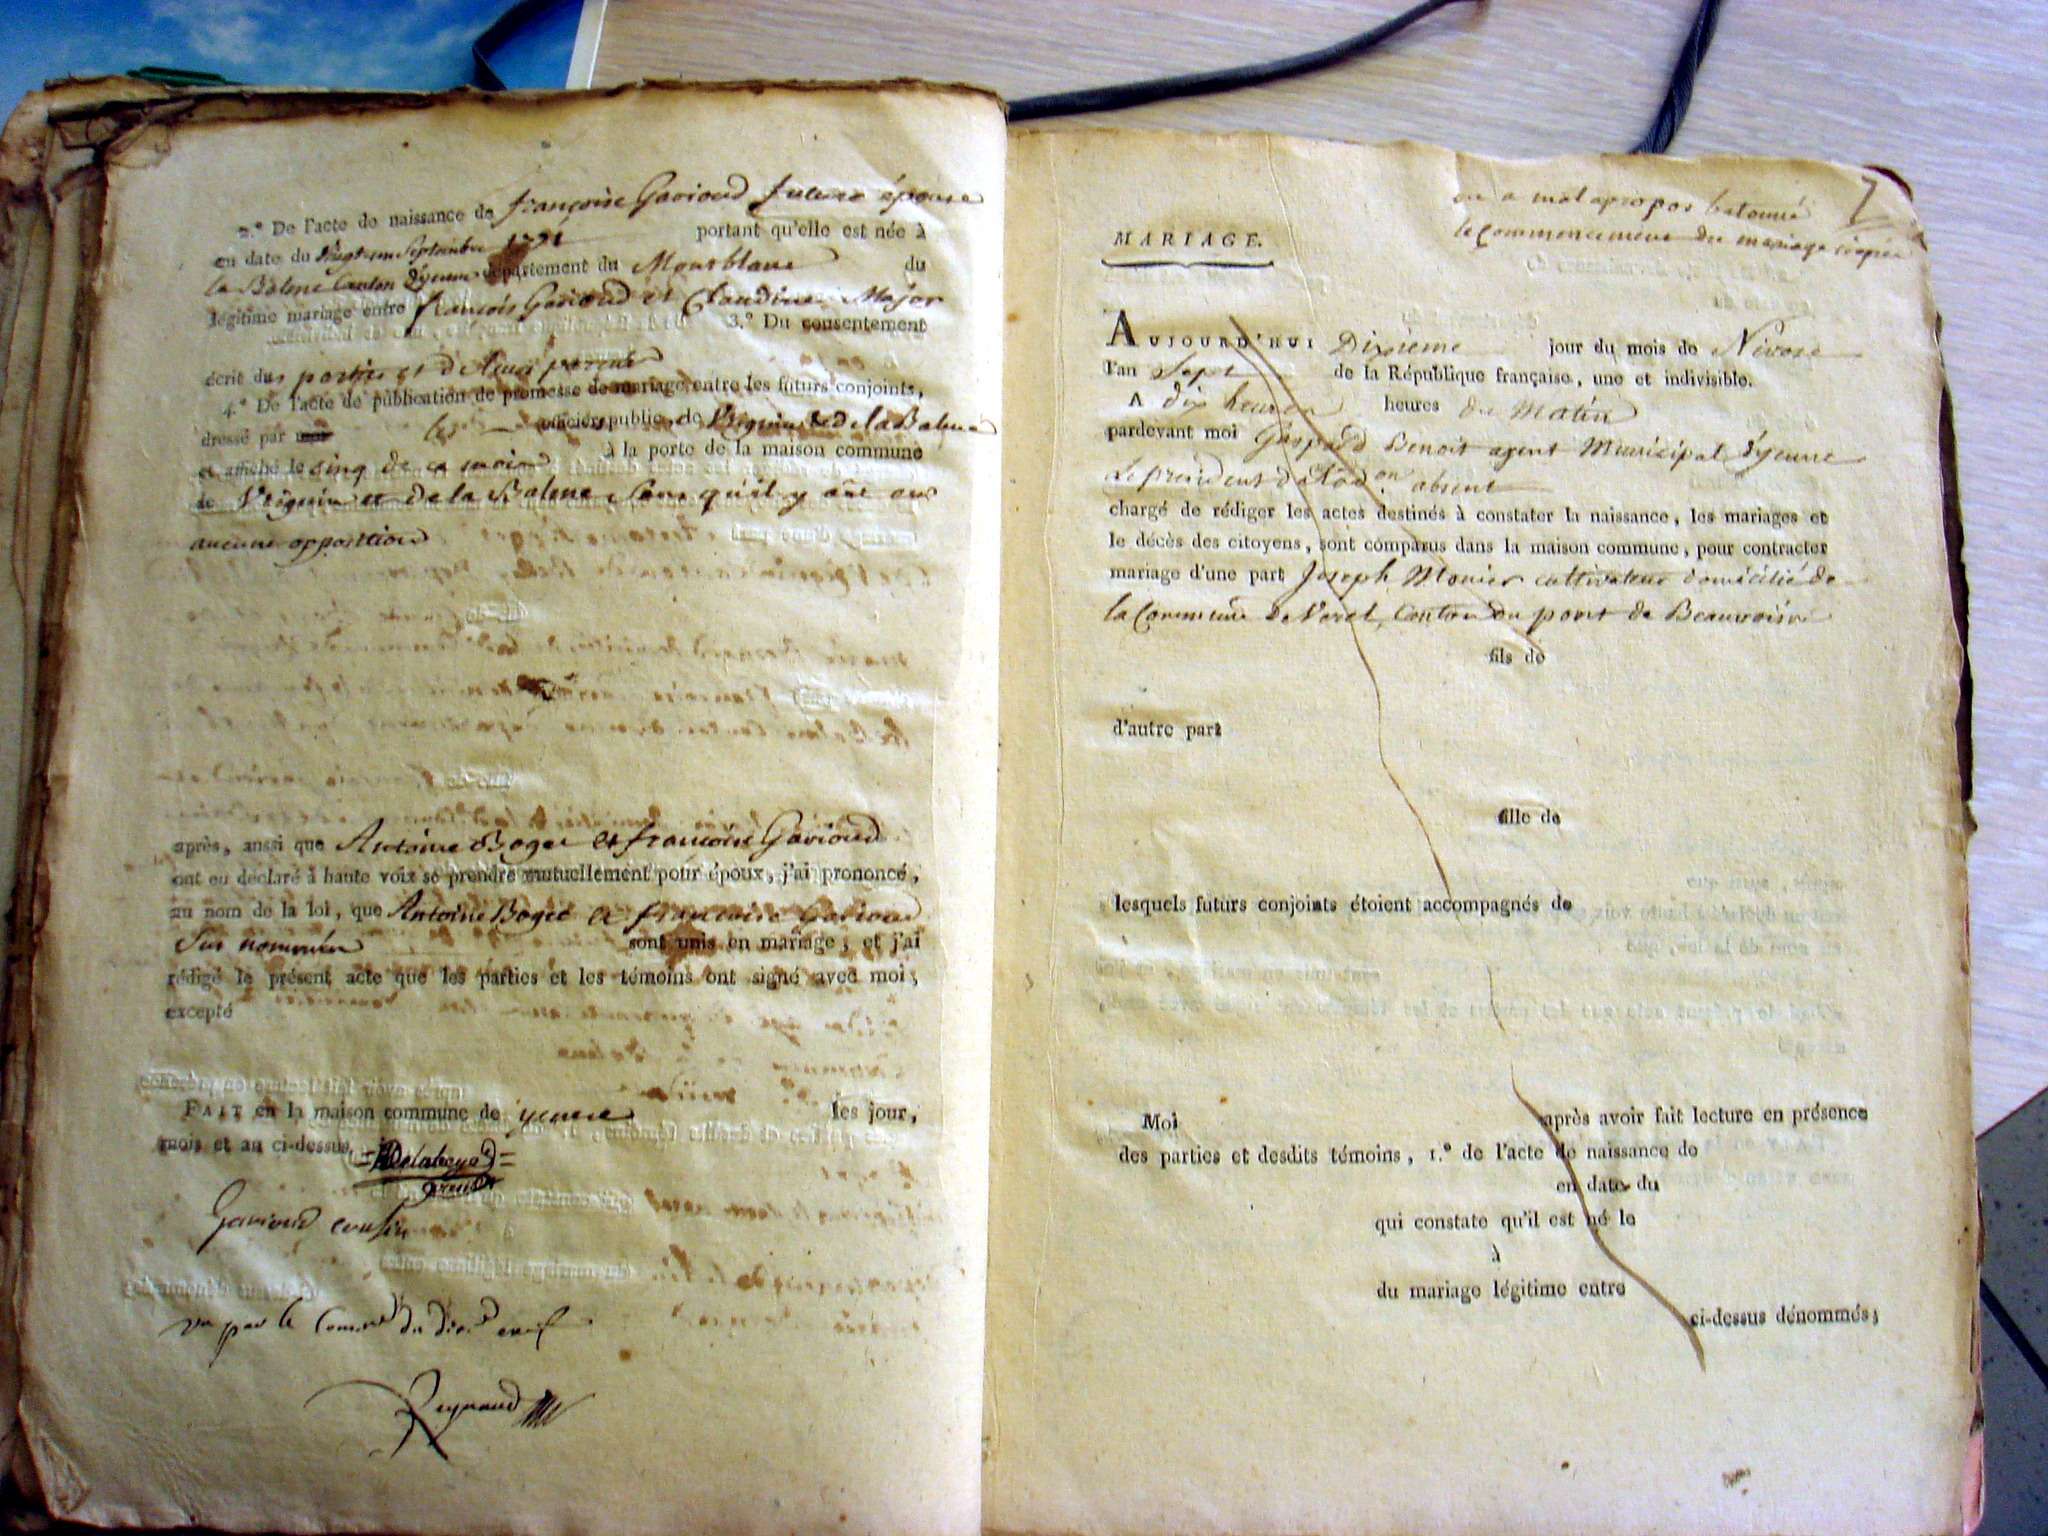 2.° De l'acte de naissance de françoise Gavioud future épouse
en date du vingt-un Septembre 1771 portant qu'elle est née à
la Balme Canton d'yenne département du Montblanc du
légitime mariage entre françois Gavioud et Claudine Major
3.° Du consentement
écrit des parties et de leurs parens
4.° De l'acte de publication de promesse de mariage entre les futurs conjoints,
dressé par les officiers public de et de la Balme
et affiché le cinq de ce mois à la porte de la maison commune
de et de la Balme, sans qu'il y aie eu
aucune opposition
après, aussi que Antoine Boget et françoise Gavioud
ont eu déclaré à haute voix se prendre mutuellement pour époux, j'ai prononcé,
au nom de la loi, que Antoine Boget et françoise Gavioud
sus nommés sont unis en mariage; et j'ai
rédigé le présent acte que les parties et les témoins ont signé avec moi;
excepté
FAIT en la maison commune de yenne les jour,
mois et an ci-dessus
Gavioud cousin
vu par le
Reynaud
on a mal apropos batonné
le Commencement du mariage
MARIAGE.
AUJOURD'HUI Dixième jour du mois de Nivose
l'an Sept de la République française, une et indivisible.
A dix heures heures du Matin
pardevant moi Gaspard Benoit agent Municipal d'yenne
Le président absent
chargé de rédiger les actes destinés à constater la naissance, les mariages et
le décès des citoyens, sont comparus dans la maison commune, pour contracter
mariage d'une part Joseph Monier cultivateur domicilié de
la Commune de Verel, Canton du pont de Beauvoisin
fils de
d'autre part
fille de
lesquels futurs conjoints étoient accompagnés de
Moi après avoir fait lecture en présence
des parties et desdits témoins, 1.° de l'acte de naissance de
en date du
qui constate qu'il est né le
à
du mariage légitime entre
ci-dessus dénommés;